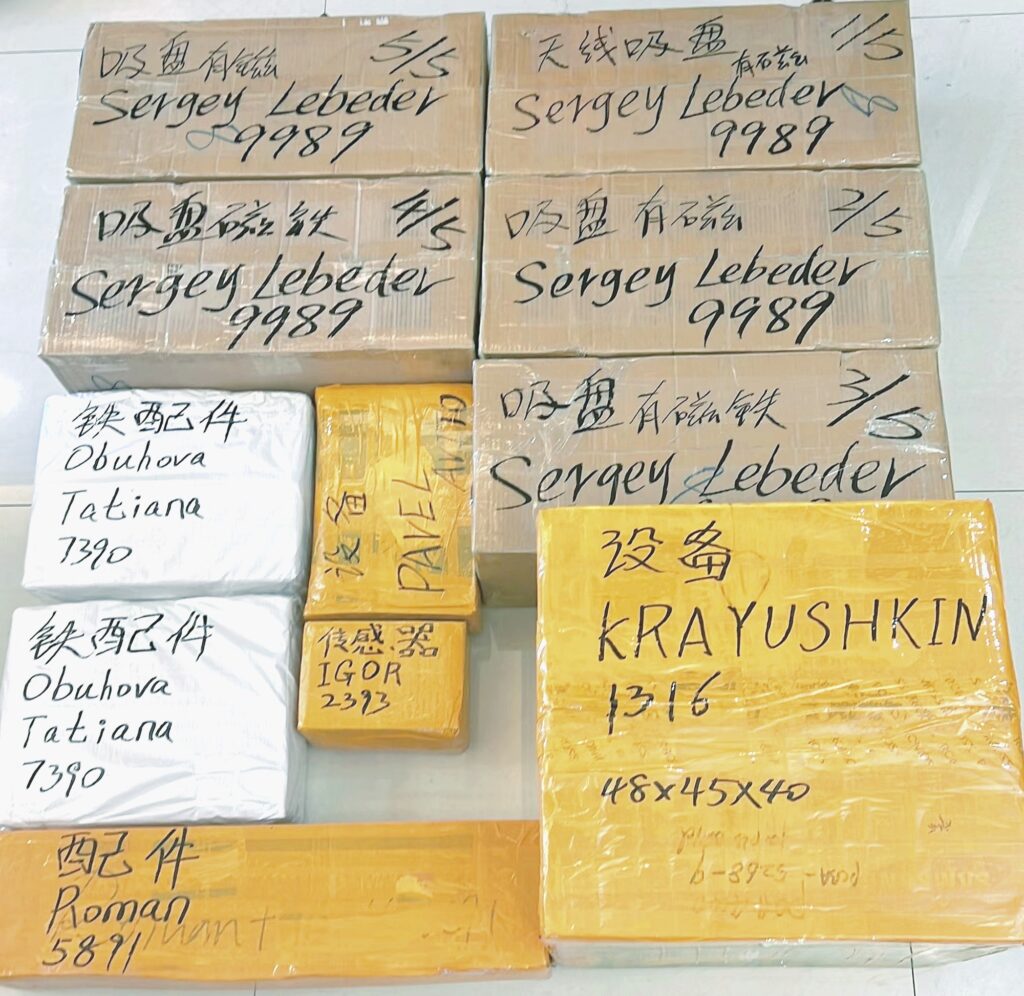 吸盘有磁 5/5
Sergey Lebeder
9989
天线吸盘有磁 1/5
Sergey Lebeder
9989
吸盘磁铁 4/5
Sergey Lebeder
9989
吸盘有磁 2/5
Sergey Lebeder
9989
吸盘有磁铁 3/5
Sergey Lebeder
铁配件
Obuhova
Tatiana
7390
设备
PAVEL
铁配件
Obuhova
Tatiana
7390
传感器
IGOR
2393
设备
KRAYUSHKIN
1316
48x45x40
配件
Roman
5891